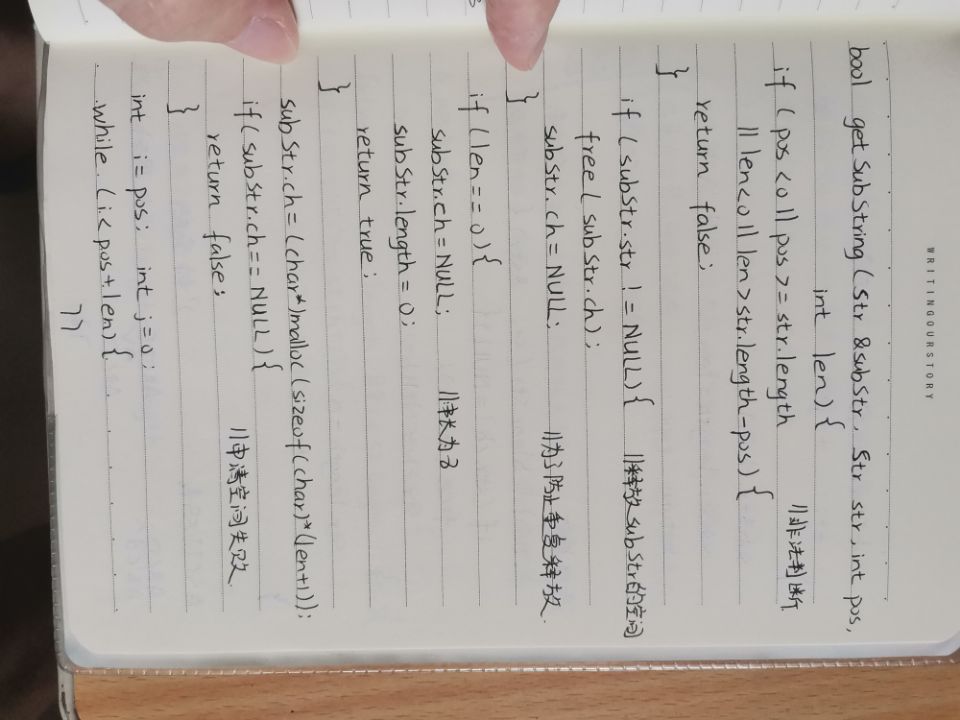 WRITINGOURSTORY
bool getSubString(Str &subStr, Str str, int pos,
int len){
if (pos<0 || pos>=str.length //非法判断
|| len<0 || len>str.length-pos){
return false;
}
if (subStr.str != NULL){ //释放subStr的空间
free(subStr.ch);
subStr.ch=NULL; //为了防止重复释放.
}
if (len==0){
subStr.ch=NULL; //串长为0
subStr.length=0;
return true;
}
subStr.ch=(char*)malloc(sizeof(char)*(len+1));
if(subStr.ch==NULL){
return false; //申请空间失败.
}
int i=pos; int j=0;
while (i<pos+len){
77